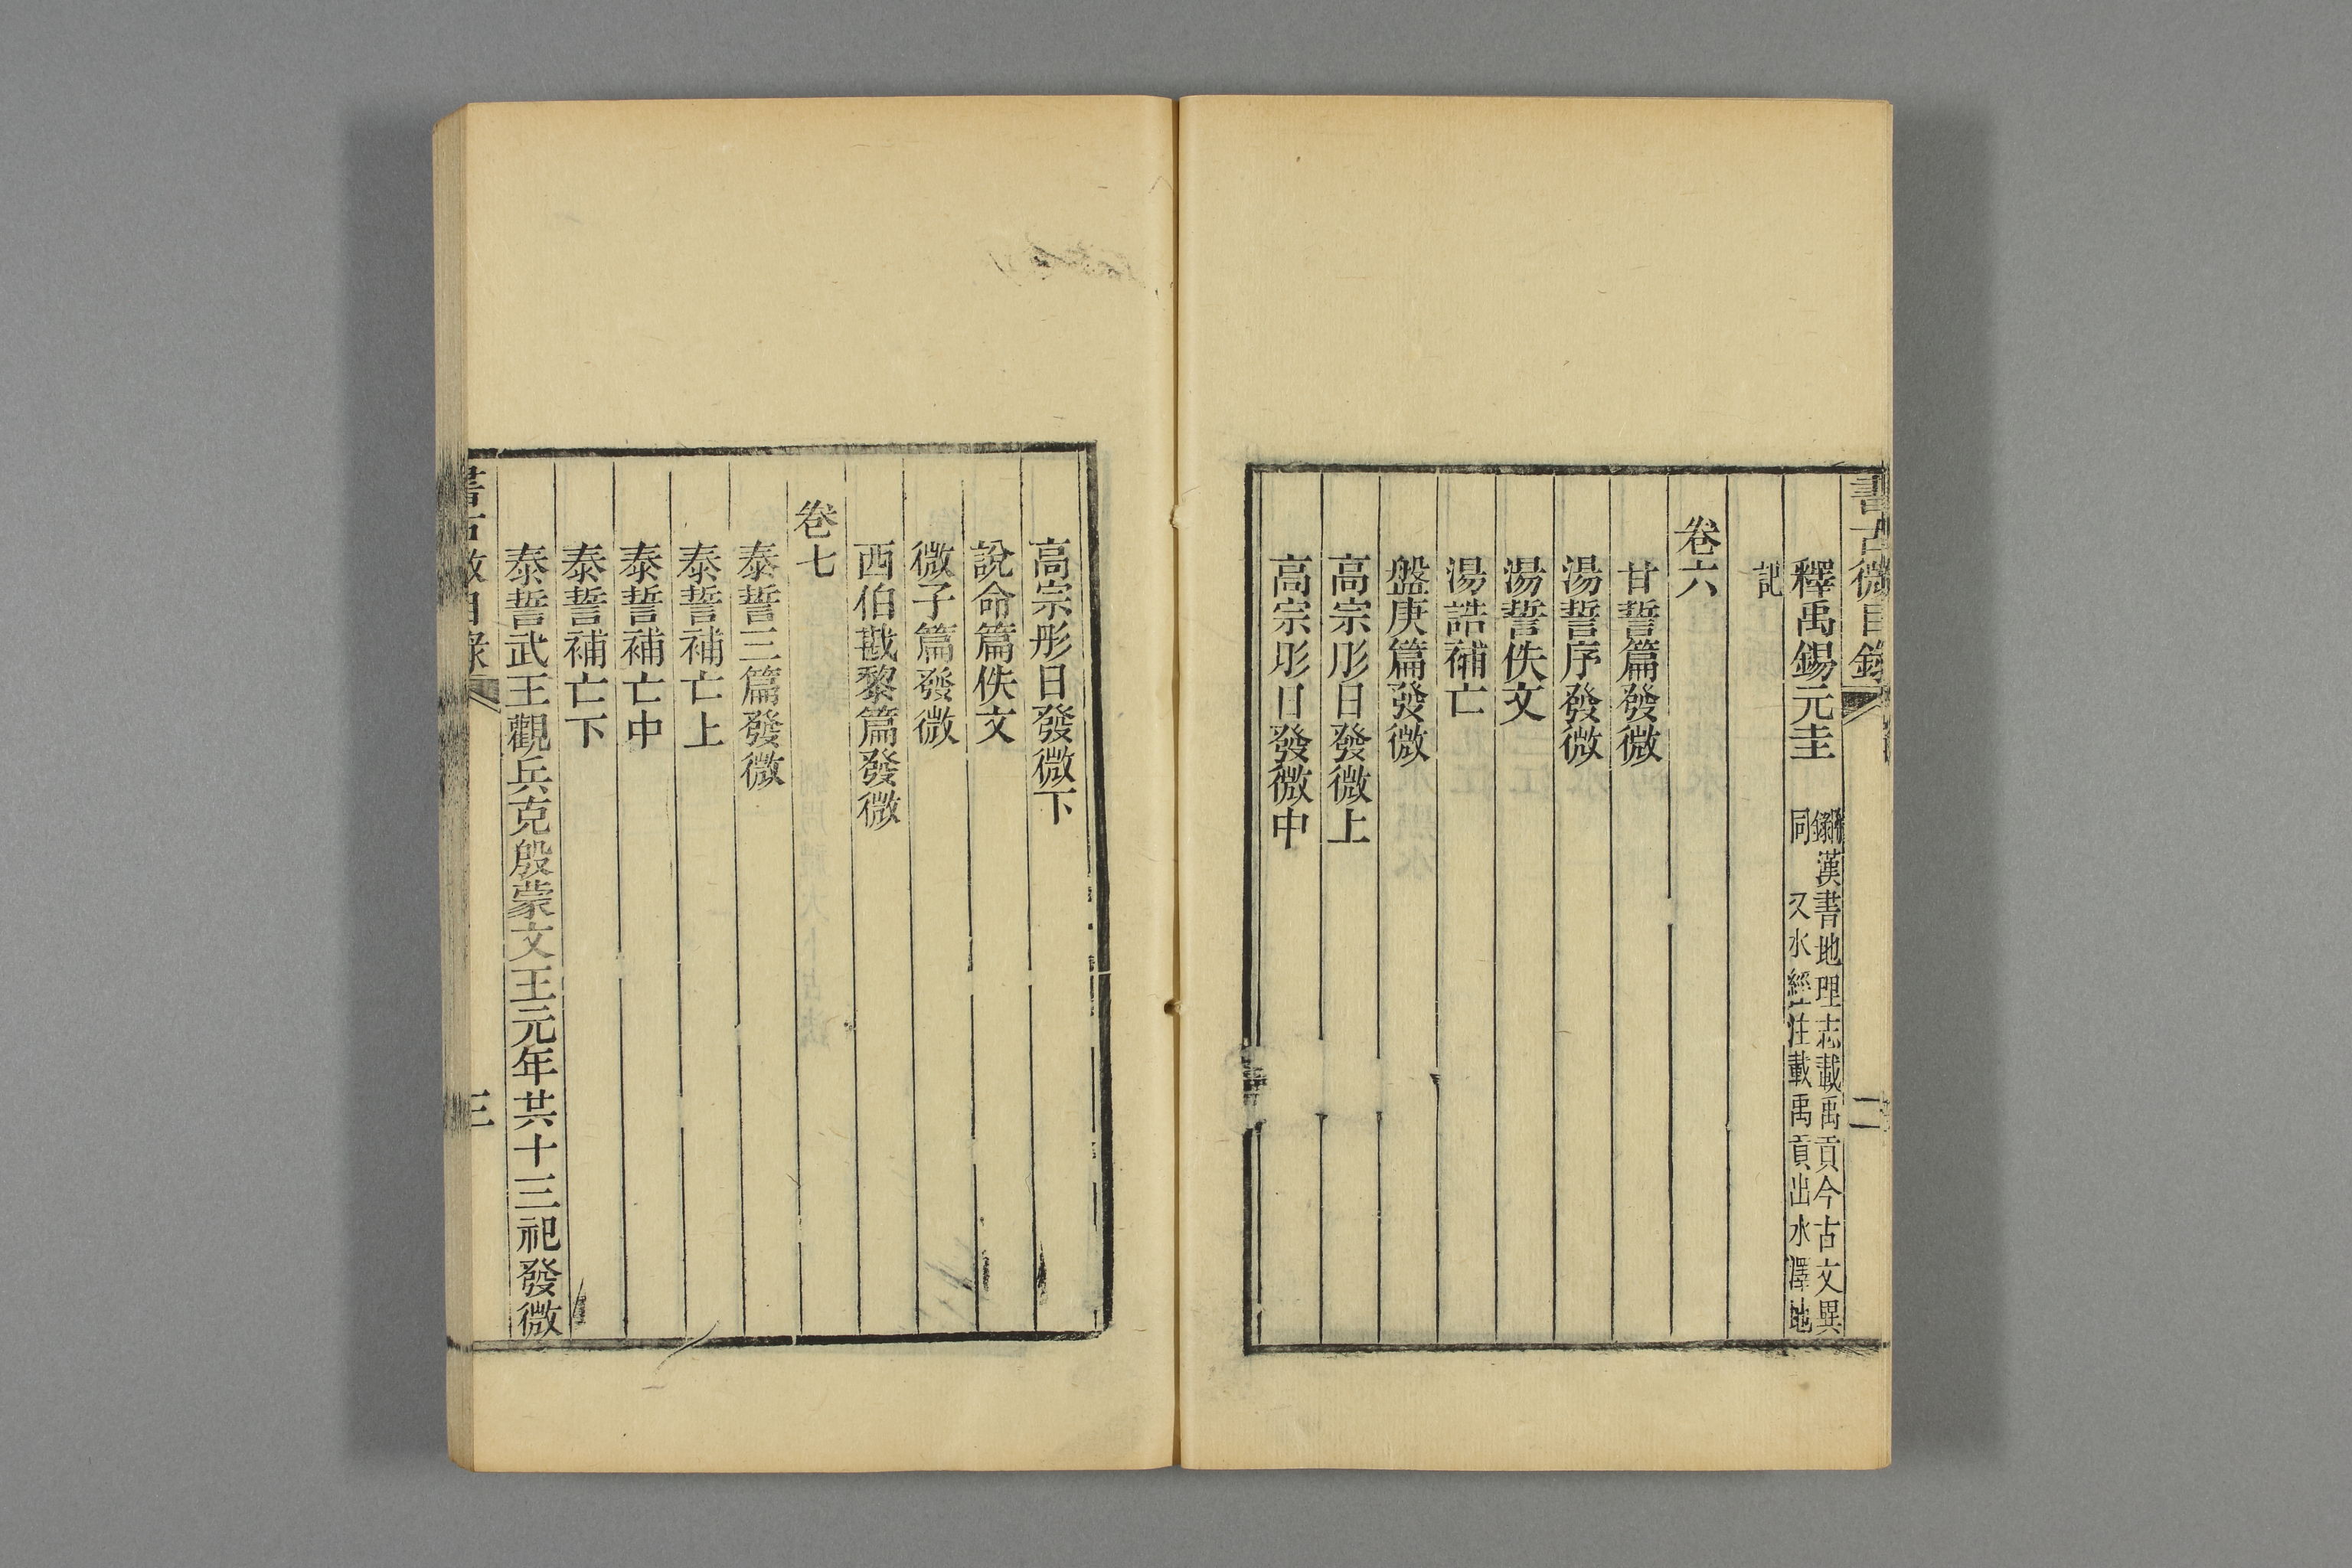 書古微目錄
二
釋禹錫元圭 附錄漢書地理志載禹貢今古文異
同 又水經注載禹貢出水澤地
記
卷六
甘誓篇發微
湯誓序發微
湯誓佚文
湯誥補亡
盤庚篇發微
高宗肜日發微上
高宗肜日發微中
高宗肜日發微下
說命篇佚文
微子篇發微
西伯戡黎篇發微
卷七
泰誓三篇發微
泰誓補亡上
泰誓補亡中
泰誓補亡下
泰誓武王觀兵克殷蒙文王元年共十三祀發微
書古微目錄
三